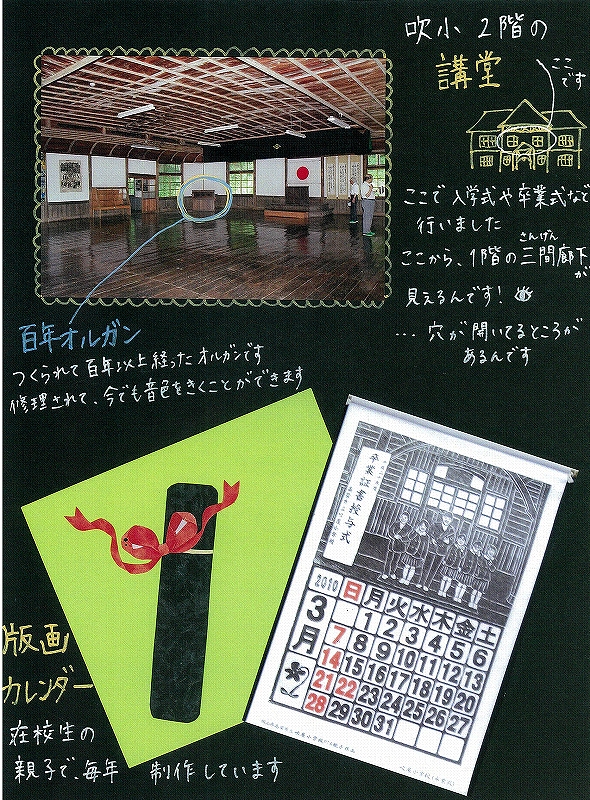 吹小 2階の
講堂
ここ
です
ここで 入学式や卒業式など
行いました
さんげん
ここから、1階の三間廊下
が
見えるんです!
… 穴が開いてるところが
あるんです
百年オルガン
つくられて百年以上経ったオルガンです
修理されて、今でも音色をきくことができます
卒業証書授与式
2010 日 月 火 水 木 金 土
3月
1 2 3 4 5 6
7 8 9 10 11 12 13
14 15 16 17 18 19 20
21 22 23 24 25 26 27
28 29 30 31
版画
カレンダー
在校生の
親子で、毎年 制作しています